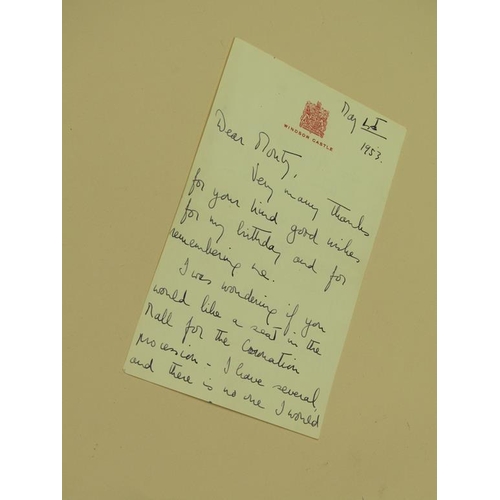 WINDSOR CASTLE
May 1st
1953.
Dear Monty,
Very many thanks
for your kind good wishes
for my birthday and for
remembering me.
I was wondering if you
would like a seat in the
Mall for the Coronation
Procession - I have several,
and there is no one I would